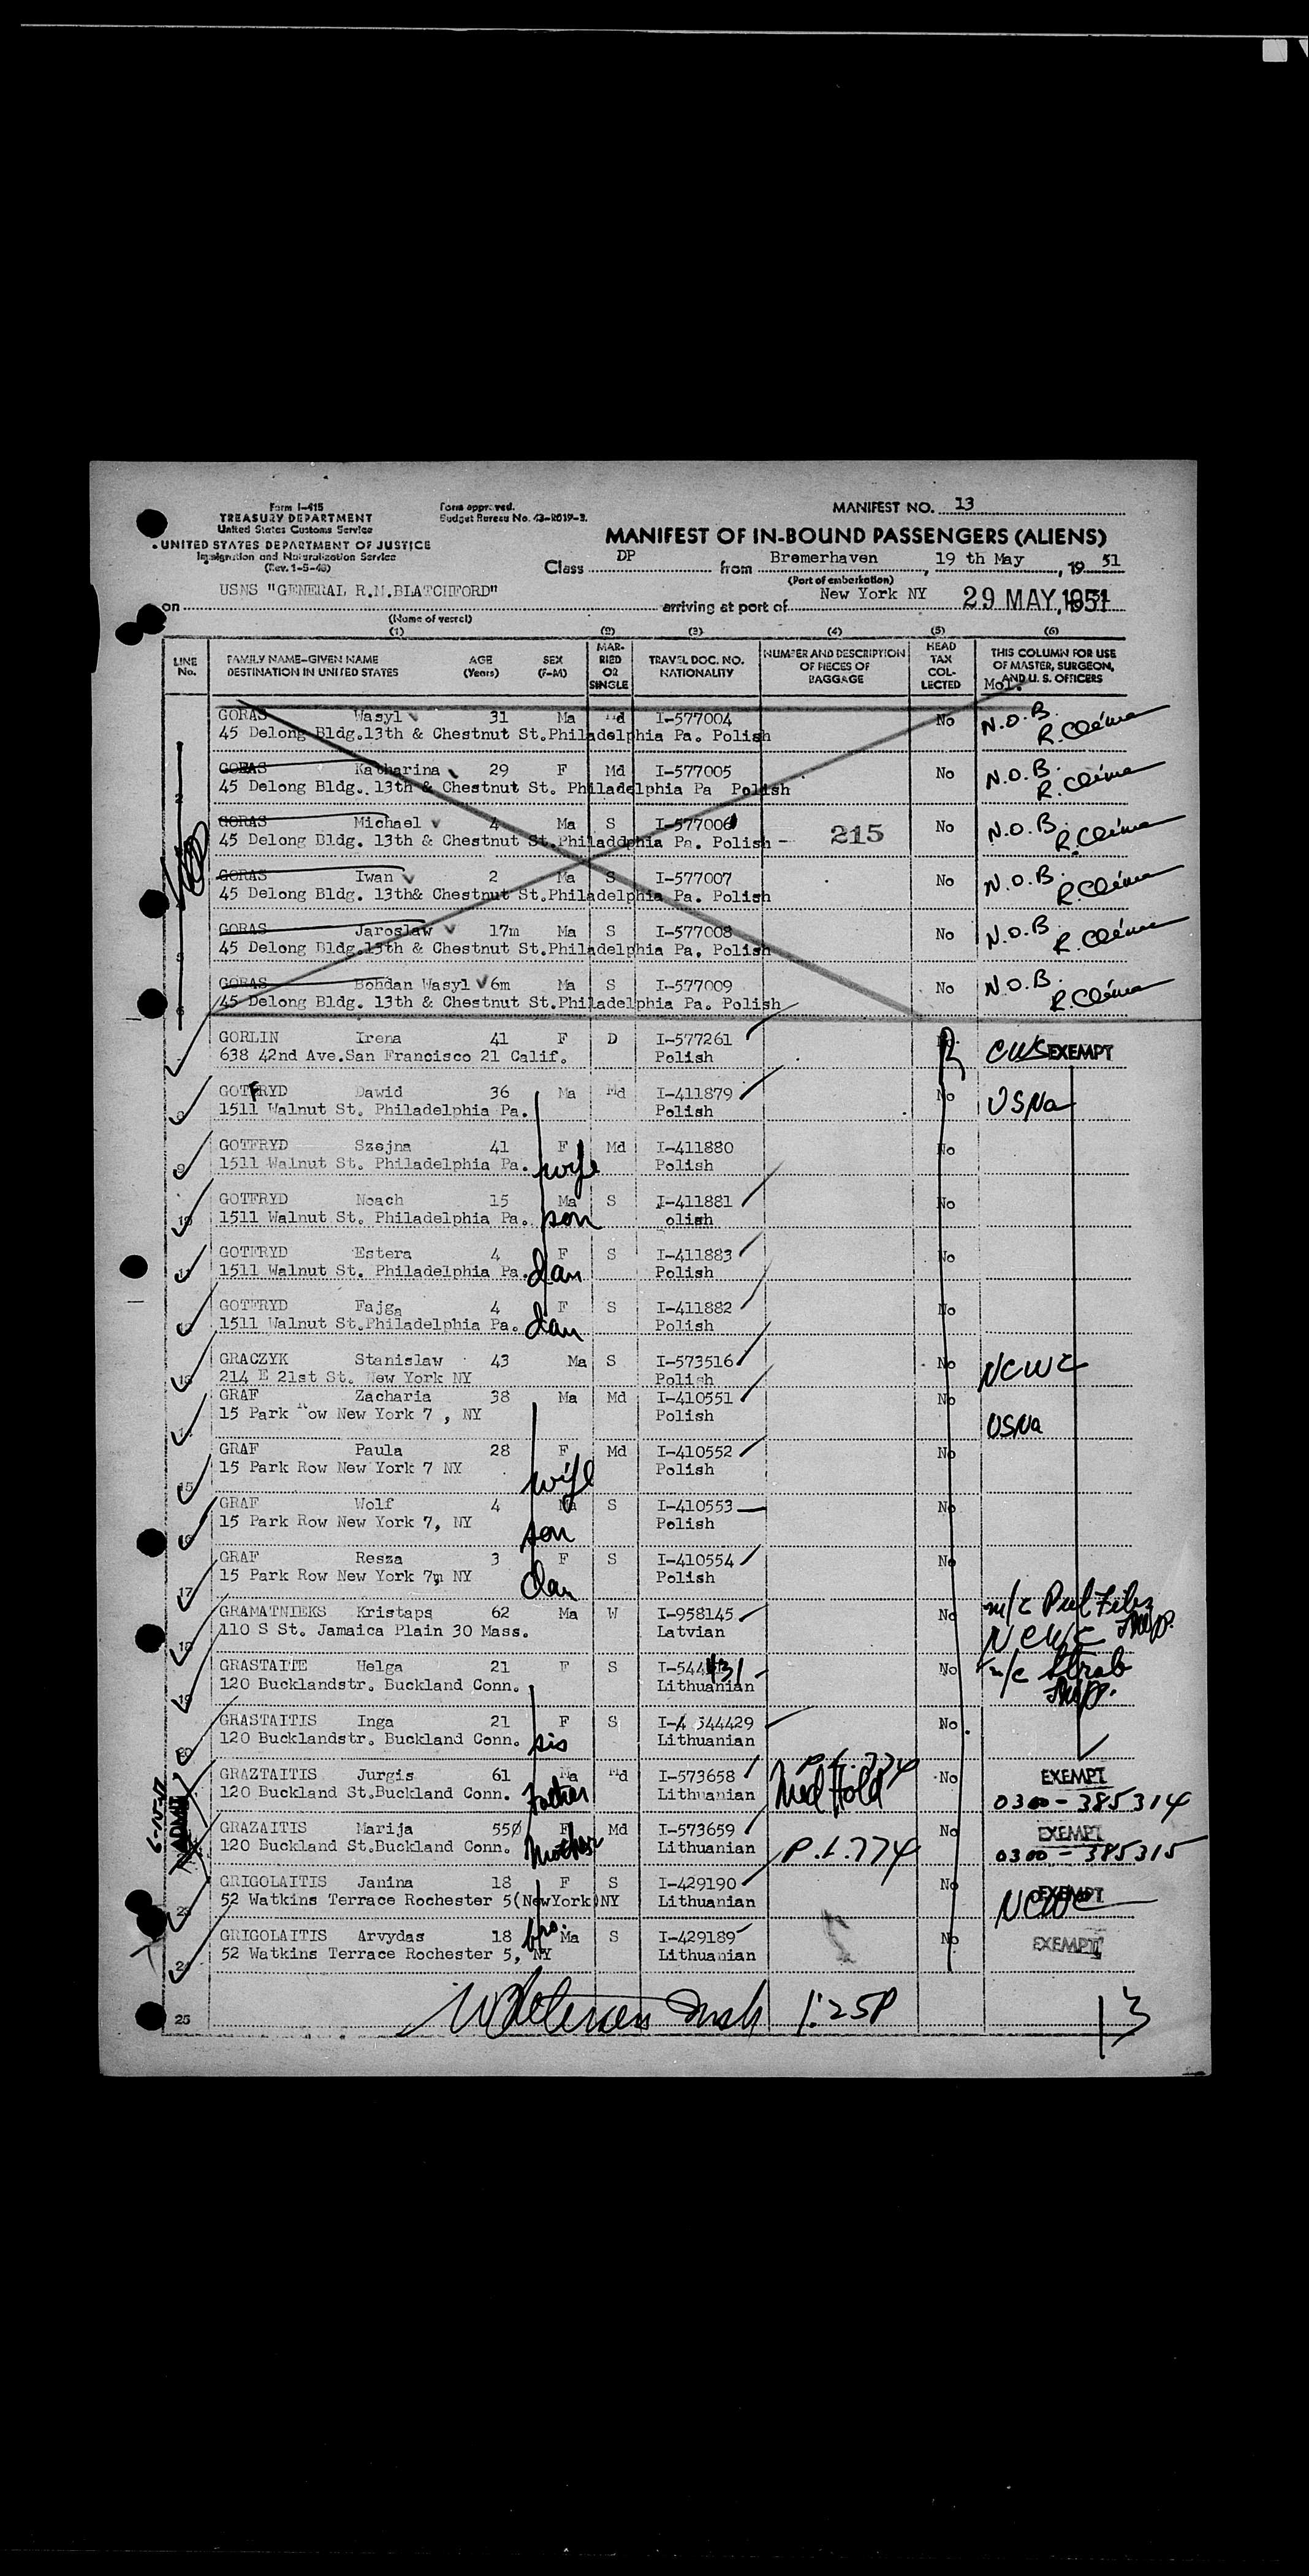 Form I-415
TREASURY DEPARTMENT
United States Customs Service
UNITED STATES DEPARTMENT OF JUSTICE
Immigration and Naturalization Service
(Rev. 1-5-48)
Form approved.
Budget Bureau No. 43-R019-2.
MANIFEST NO. 13
MANIFEST OF IN-BOUND PASSENGERS (ALIENS)
Class DP from Bremerhaven, 19 th May, 19 51
(Port of embarkation)
on USNS "GENERAL R.M.BLATCHFORD" arriving at port of New York NY 29 MAY 1951
(Name of vessel)
(1) (2) (3) (4) (5) (6)
LINE No. FAMILY NAME-GIVEN NAME DESTINATION IN UNITED STATES AGE (Years) SEX (F-M) MARRIED OR SINGLE TRAVEL DOC. NO. NATIONALITY NUMBER AND DESCRIPTION OF PIECES OF BAGGAGE HEAD TAX COLLECTED THIS COLUMN FOR USE OF MASTER, SURGEON, AND U. S. OFFICERS
GORAS Wasyl 31 Ma Md I-577004 No N.O.B.
45 Delong Bldg.13th & Chestnut St.Philadelphia Pa. Polish
2 GORAS Katharina 29 F Md I-577005 No N.O.B.
45 Delong Bldg. 13th & Chestnut St. Philadelphia Pa Polish
GORAS Michael 4 Ma S I-577006 No N.O.B.
45 Delong Bldg. 13th & Chestnut St.Philaddphia Pa. Polish - 215
GORAS Iwan 2 Ma S I-577007 No N.O.B.
45 Delong Bldg. 13th& Chestnut St.Philadelphia Pa. Polish
5 GORAS Jaroslaw 17m Ma S I-577008 No N.O.B
45 Delong Bldg.13th & Chestnut St.Philadelphia Pa. Polish
6 GORAS Bohdan Wasyl 6m Ma S I-577009 No N.O.B.
45 Delong Bldg. 13th & Chestnut St.Philadelphia Pa. Polish
GORLIN Irena 41 F D I-577261 No CWS EXEMPT
638 42nd Ave.San Francisco 21 Calif. Polish
8 GOTFRYD Dawid 36 Ma Md I-411879 No USNa
1511 Walnut St. Philadelphia Pa. Polish
9 GOTFRYD Szejna 41 F Md I-411880 No
1511 Walnut St. Philadelphia Pa. wife Polish
10 GOTFRYD Noach 15 Ma S I-411881 No
1511 Walnut St. Philadelphia Pa. son olish
11 GOTFRYD Estera 4 F S I-411883 No
1511 Walnut St. Philadelphia Pa. dau Polish
12 GOTFRYD Fajga 4 F S I-411882 No
1511 Walnut St.Philadelphia Pa. dau Polish
13 GRACZYK Stanislaw 43 Ma S I-573516 No NCWC
214 E 21st St. New York NY Polish
GRAF Zacharia 38 Ma Md I-410551 No
15 Park Row New York 7 , NY Polish USNa
15 GRAF Paula 28 F Md I-410552 No
15 Park Row New York 7 NY wife Polish
16 GRAF Wolf 4 Ma S I-410553 No
15 Park Row New York 7, NY son Polish
17 GRAF Resza 3 F S I-410554 No
15 Park Row New York 7, NY dau Polish
18 GRAMATNIEKS Kristaps 62 Ma W I-958145 No
110 S St. Jamaica Plain 30 Mass. Latvian NCWC
19 GRASTAITE Helga 21 F S No
120 Bucklandstr. Buckland Conn. Lithuanian
20 GRASTAITIS Inga 21 F S I-544429 No
120 Bucklandstr. Buckland Conn. sis Lithuanian
GRAZTAITIS Jurgis 61 Ma Md I-573658 P.L.774 No EXEMPT
120 Buckland St.Buckland Conn. Father Lithuanian Med Hold 0300-385314
6-15-51 ADMIT
GRAZAITIS Marija 55 F Md I-573659 No EXEMPT
120 Buckland St.Buckland Conn. Mother Lithuanian P.L.774 0300-385315
23 GRIGOLAITIS Janina 18 F S I-429190 No EXEMPT
52 Watkins Terrace Rochester 5(NewYork)NY Lithuanian NCWC
24 GRIGOLAITIS Arvydas 18 bro. Ma S I-429189 No EXEMPT
52 Watkins Terrace Rochester 5, NY Lithuanian
25 1:25P 13